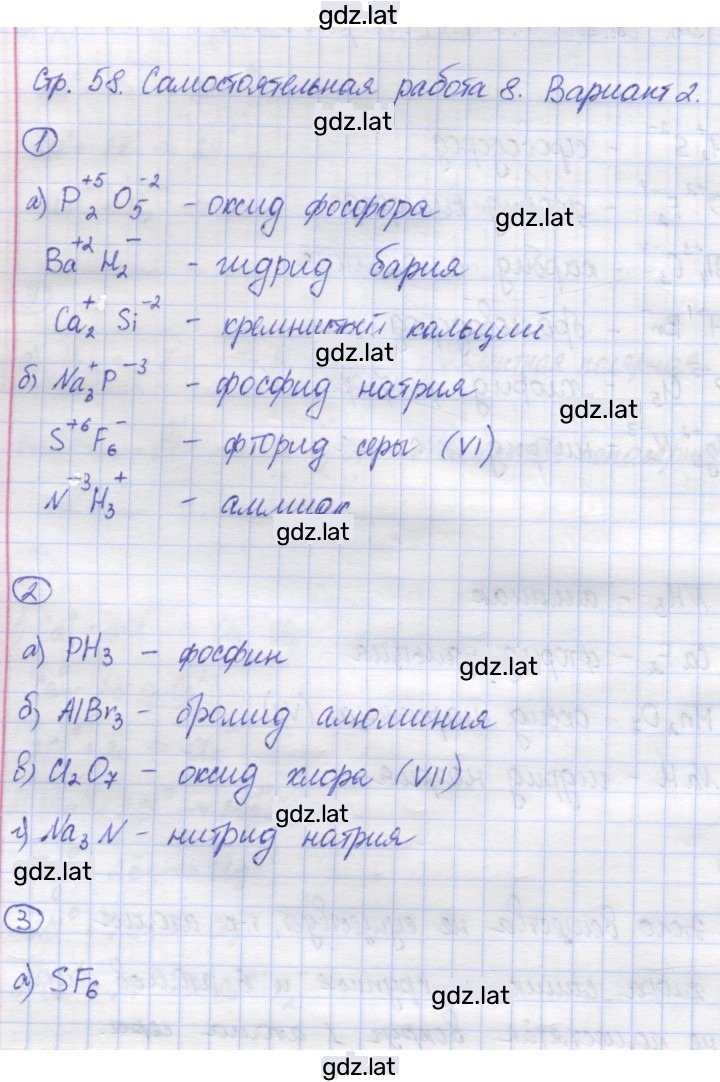 gdz.lat
Стр. 58. Самостоятельная работа 8. Вариант 2.
gdz.lat
1
а) P₂⁺⁵O₅⁻² - оксид фосфора
gdz.lat
Ba⁺²H₂⁻ - гидрид бария
Ca₂⁺Si⁻² - кремнистый кальций
gdz.lat
б) Na₃⁺P⁻³ - фосфид натрия
gdz.lat
S⁺⁶F₆⁻ - фторид серы (VI)
N⁻³H₃⁺ - аммиак
gdz.lat
2
а) PH₃ - фосфин
gdz.lat
б) AlBr₃ - бромид алюминия
в) Cl₂O₇ - оксид хлора (VII)
gdz.lat
г) Na₃N - нитрид натрия
gdz.lat
3
а) SF₆
gdz.lat
gdz.lat